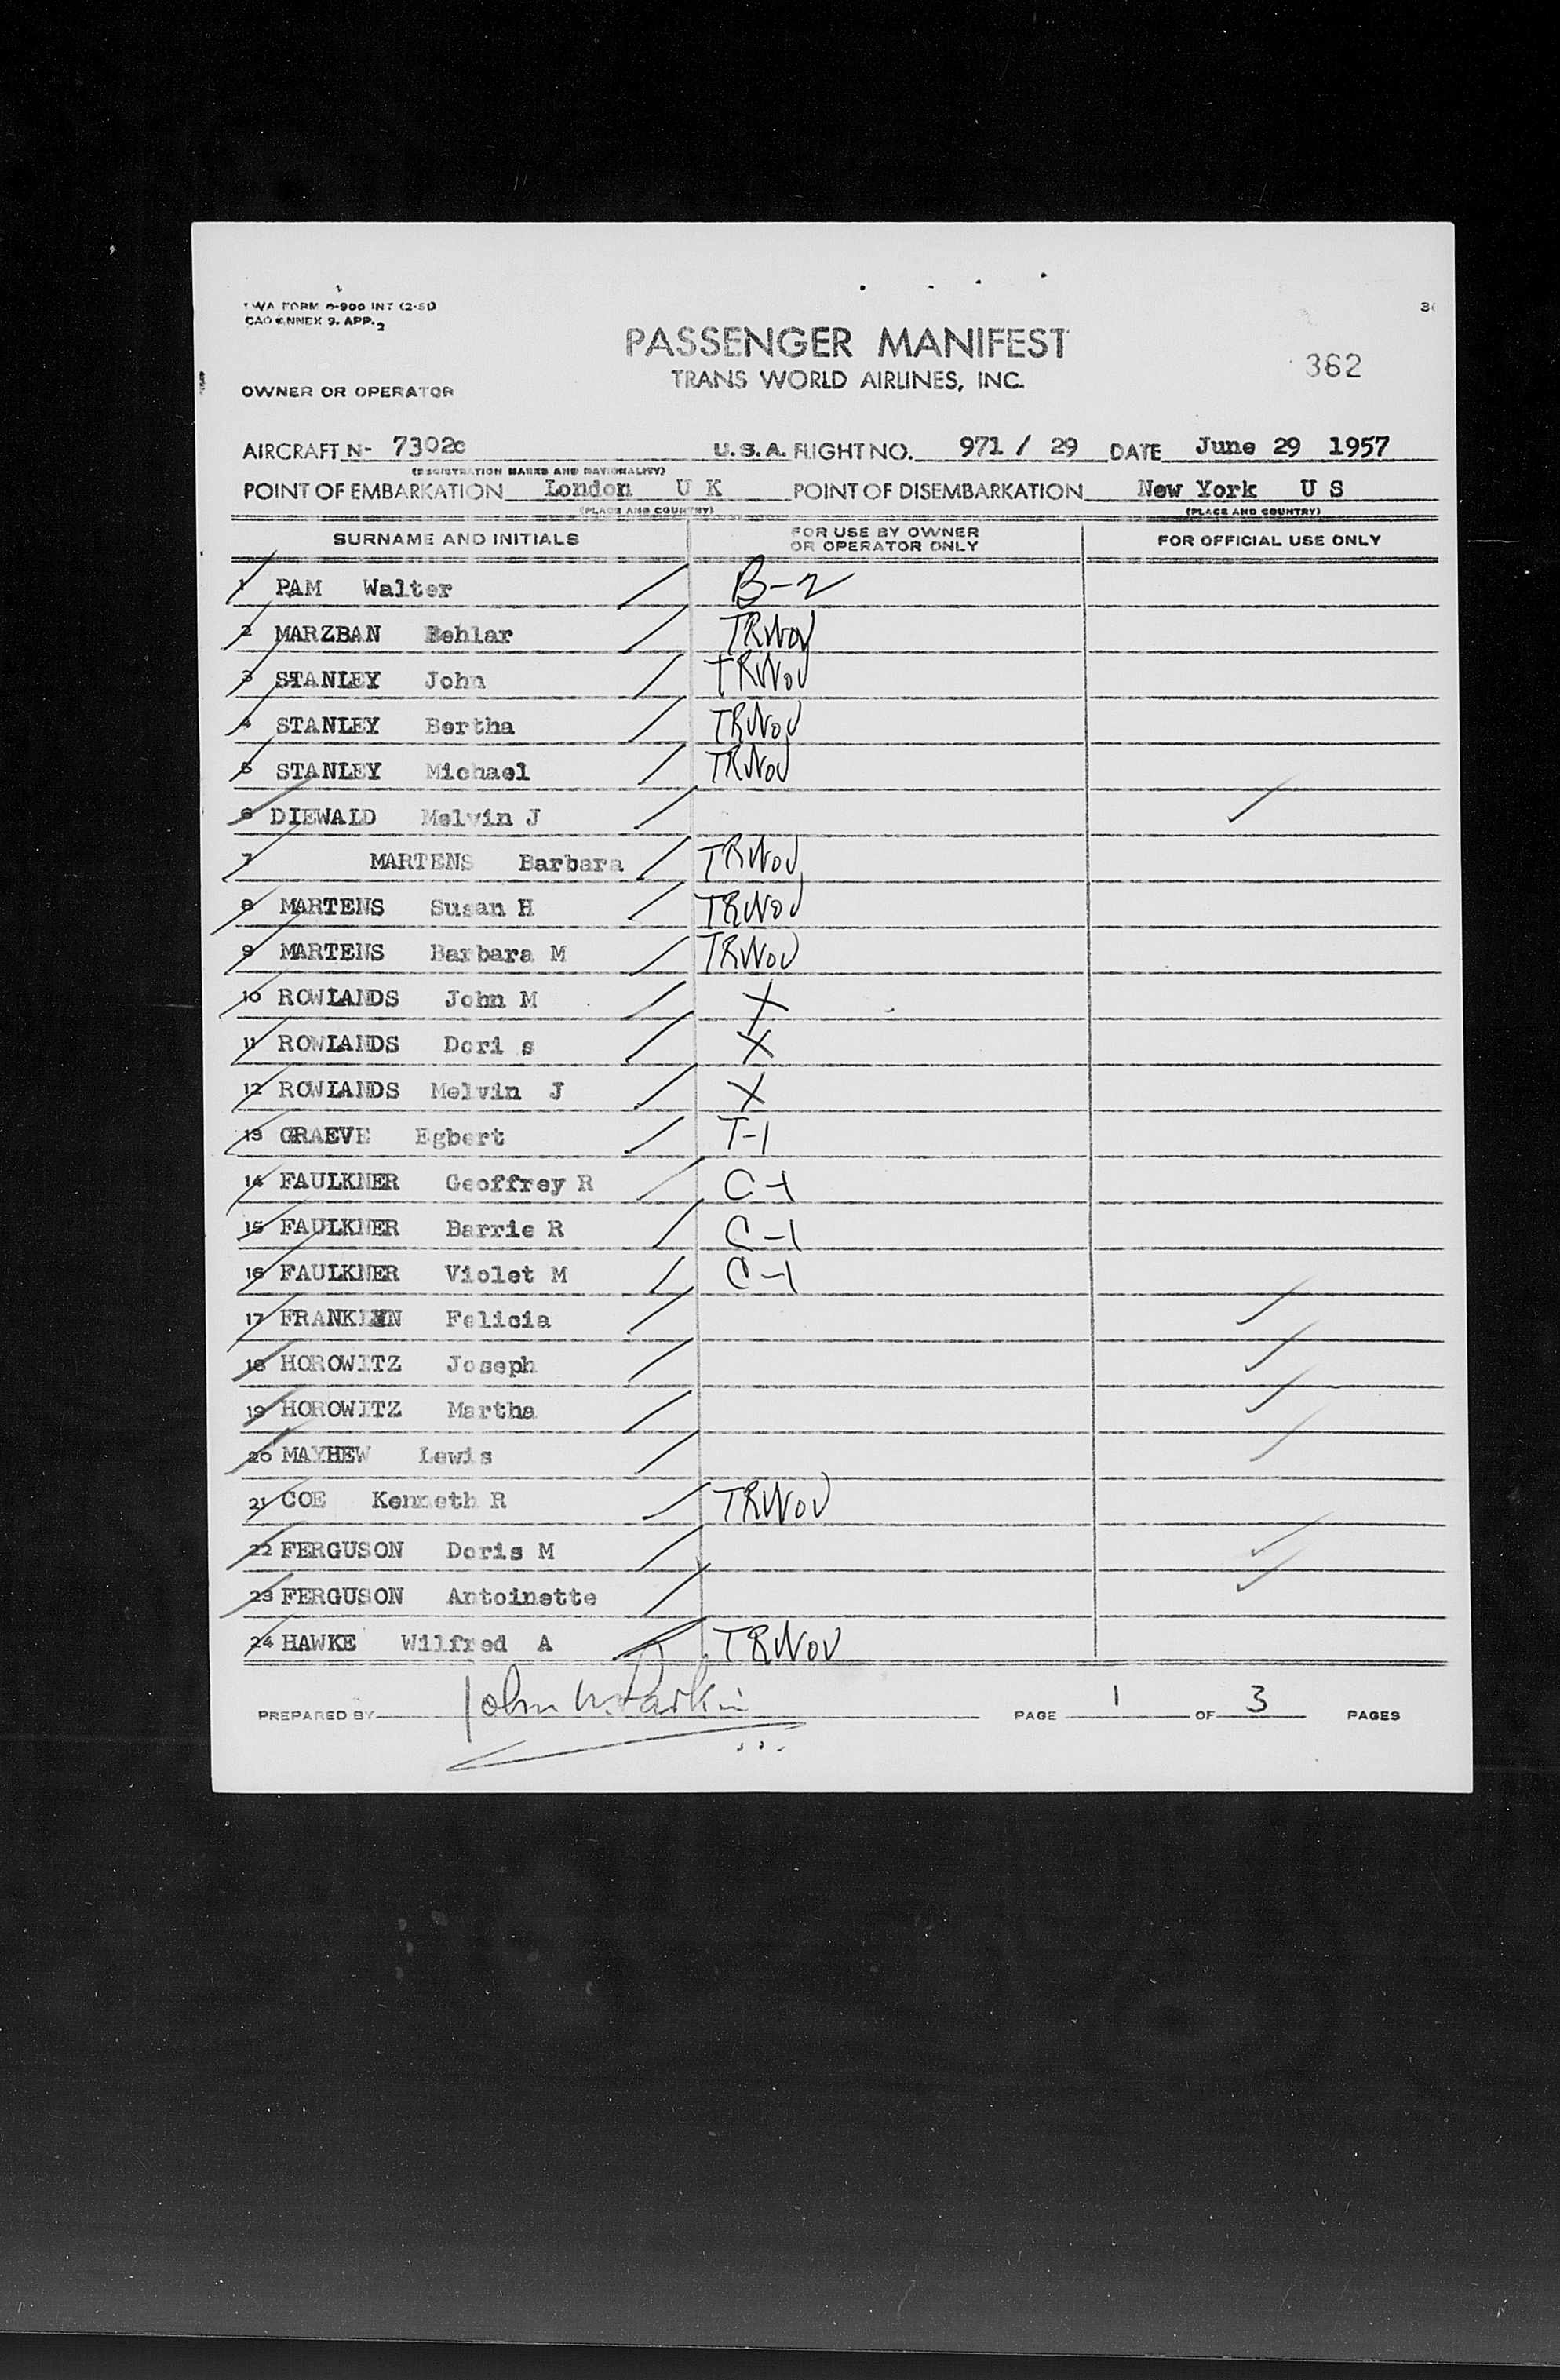 TWA FORM O-900 INT (2-51)
CAO ANNEX 9. APP. 2
PASSENGER MANIFEST
TRANS WORLD AIRLINES, INC.
362
OWNER OR OPERATOR
AIRCRAFT N- 7302c U.S.A. FLIGHT NO. 971 / 29 DATE June 29 1957
(REGISTRATION MARKS AND NATIONALITY)
POINT OF EMBARKATION London U K POINT OF DISEMBARKATION New York U S
(PLACE AND COUNTRY) (PLACE AND COUNTRY)
SURNAME AND INITIALS FOR USE BY OWNER OR OPERATOR ONLY FOR OFFICIAL USE ONLY
1 PAM Walter B-2
2 MARZBAN Behlar TRWOV
3 STANLEY John TRWOV
4 STANLEY Bertha TRWOV
5 STANLEY Michael TRWOV
6 DIEWALD Melvin J
7 MARTENS Barbara TRWOV
8 MARTENS Susan H TRWOV
9 MARTENS Barbara M TRWOV
10 ROWLANDS John M X
11 ROWLANDS Dori s X
12 ROWLANDS Melvin J X
13 GRAEVE Egbert T-1
14 FAULKNER Geoffrey R C-1
15 FAULKNER Barrie R C-1
16 FAULKNER Violet M C-1
17 FRANKLYN Felicia
18 HOROWITZ Joseph
19 HOROWITZ Martha
20 MAYHEW Lewis
21 COE Kenneth R TRWOV
22 FERGUSON Doris M
23 FERGUSON Antoinette
24 HAWKE Wilfred A TRWOV
PREPARED BY John W. Parkin PAGE 1 OF 3 PAGES